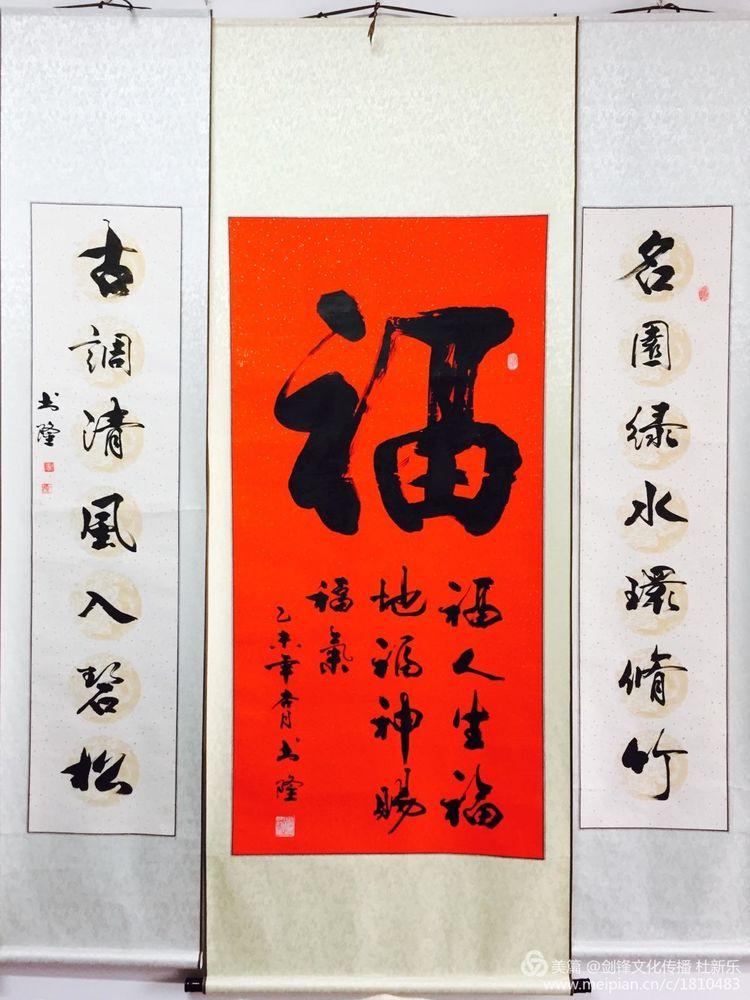 名園绿水環脩竹
福
福人生福
地福神賜
福氣
乙未年杏月书隆
古調清風入碧松
书隆
美篇 @剑锋文化传播 杜新乐
www.meipian.cn/c/1810483